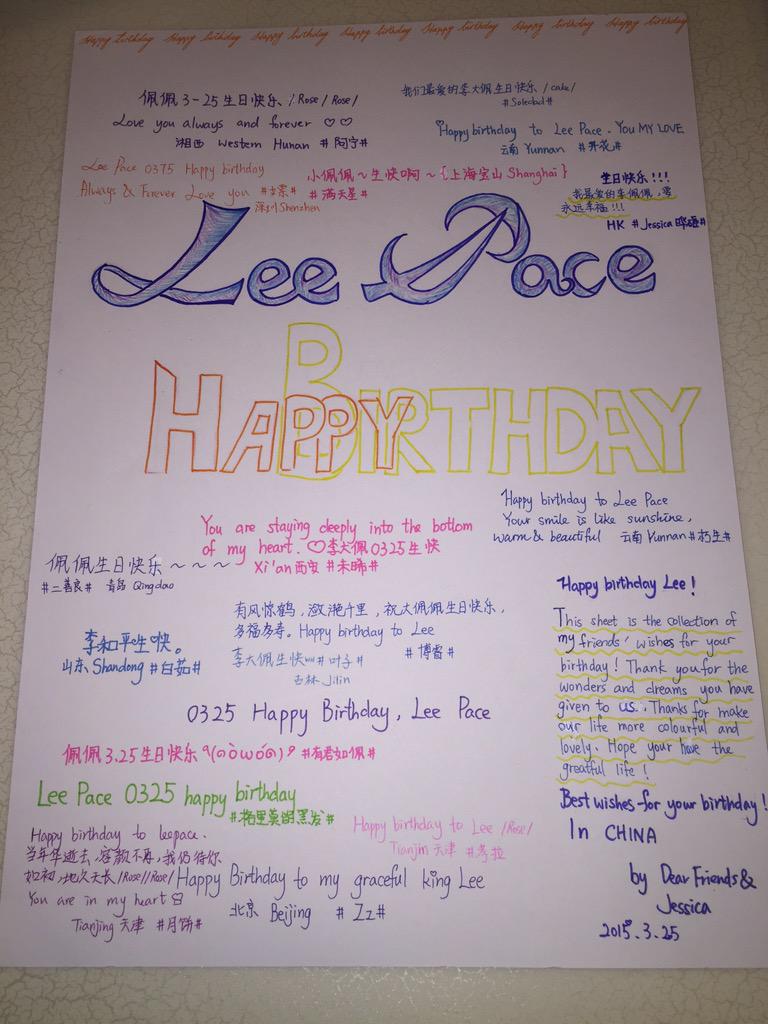 Happy birthday Happy birthday Happy birthday Happy birthday Happy birthday Happy birthday Happy birthday
佩佩3-25生日快乐/Rose/Rose/
Love you always and forever ♡♡
湘西 Western Hunan #阿宁#
我们最爱的李大佩生日快乐 /cake/
#Soledad#
Happy birthday to Lee Pace. You MY LOVE
云南 Yunnan #界花#
Lee Pace 0375 Happy birthday
Always & Forever Love you
深圳 Shenzhen
小佩佩~生快啊~{上海宝山 Shanghai}
#满天星#
生日快乐!!!
我最爱的李佩佩,要
永远幸福!!!
HK #Jessica
Lee Pace
HAPPY
BIRTHDAY
You are staying deeply into the bottom
of my heart. ♡李大佩0325生快
Xi'an西安 #未晞#
Happy birthday to Lee Pace
Your smile is like sunshine,
warm & beautiful 云南 Yunnan #朽生#
佩佩生日快乐~~~
#二善良# 青岛 Qingdao
李和平生快。
山东 Shandong #白茹#
有风惊鹤,潋滟千里,祝大佩佩生日快乐,
多福多寿。Happy birthday to Lee
#博雷#
李大佩生快ww#叶子#
吉林 Jilin
0325 Happy Birthday, Lee Pace
佩佩3.25生日快乐٩(๑òωó๑)۶ #有君如佩#
Lee Pace 0325 happy birthday
#梅里莫胡黑发#
Happy birthday to leepace.
当年华逝去,容颜不再,我仍待你
如初,地久天长/Rose//Rose/
You are in my heart
Tianjing 天津 #月饼#
Happy birthday to Lee /Rose/
Tianjin 天津 #考拉
Happy Birthday to my graceful king Lee
北京 Beijing #Zz#
Happy birthday Lee!
This sheet is the collection of
my friends' wishes for your
birthday! Thank you for the
wonders and dreams you have
given to us. Thanks for make
our life more colourful and
lovely. Hope your have the
greatful life!
Best wishes for your birthday!
In CHINA
by Dear Friends &
Jessica
2015.3.25